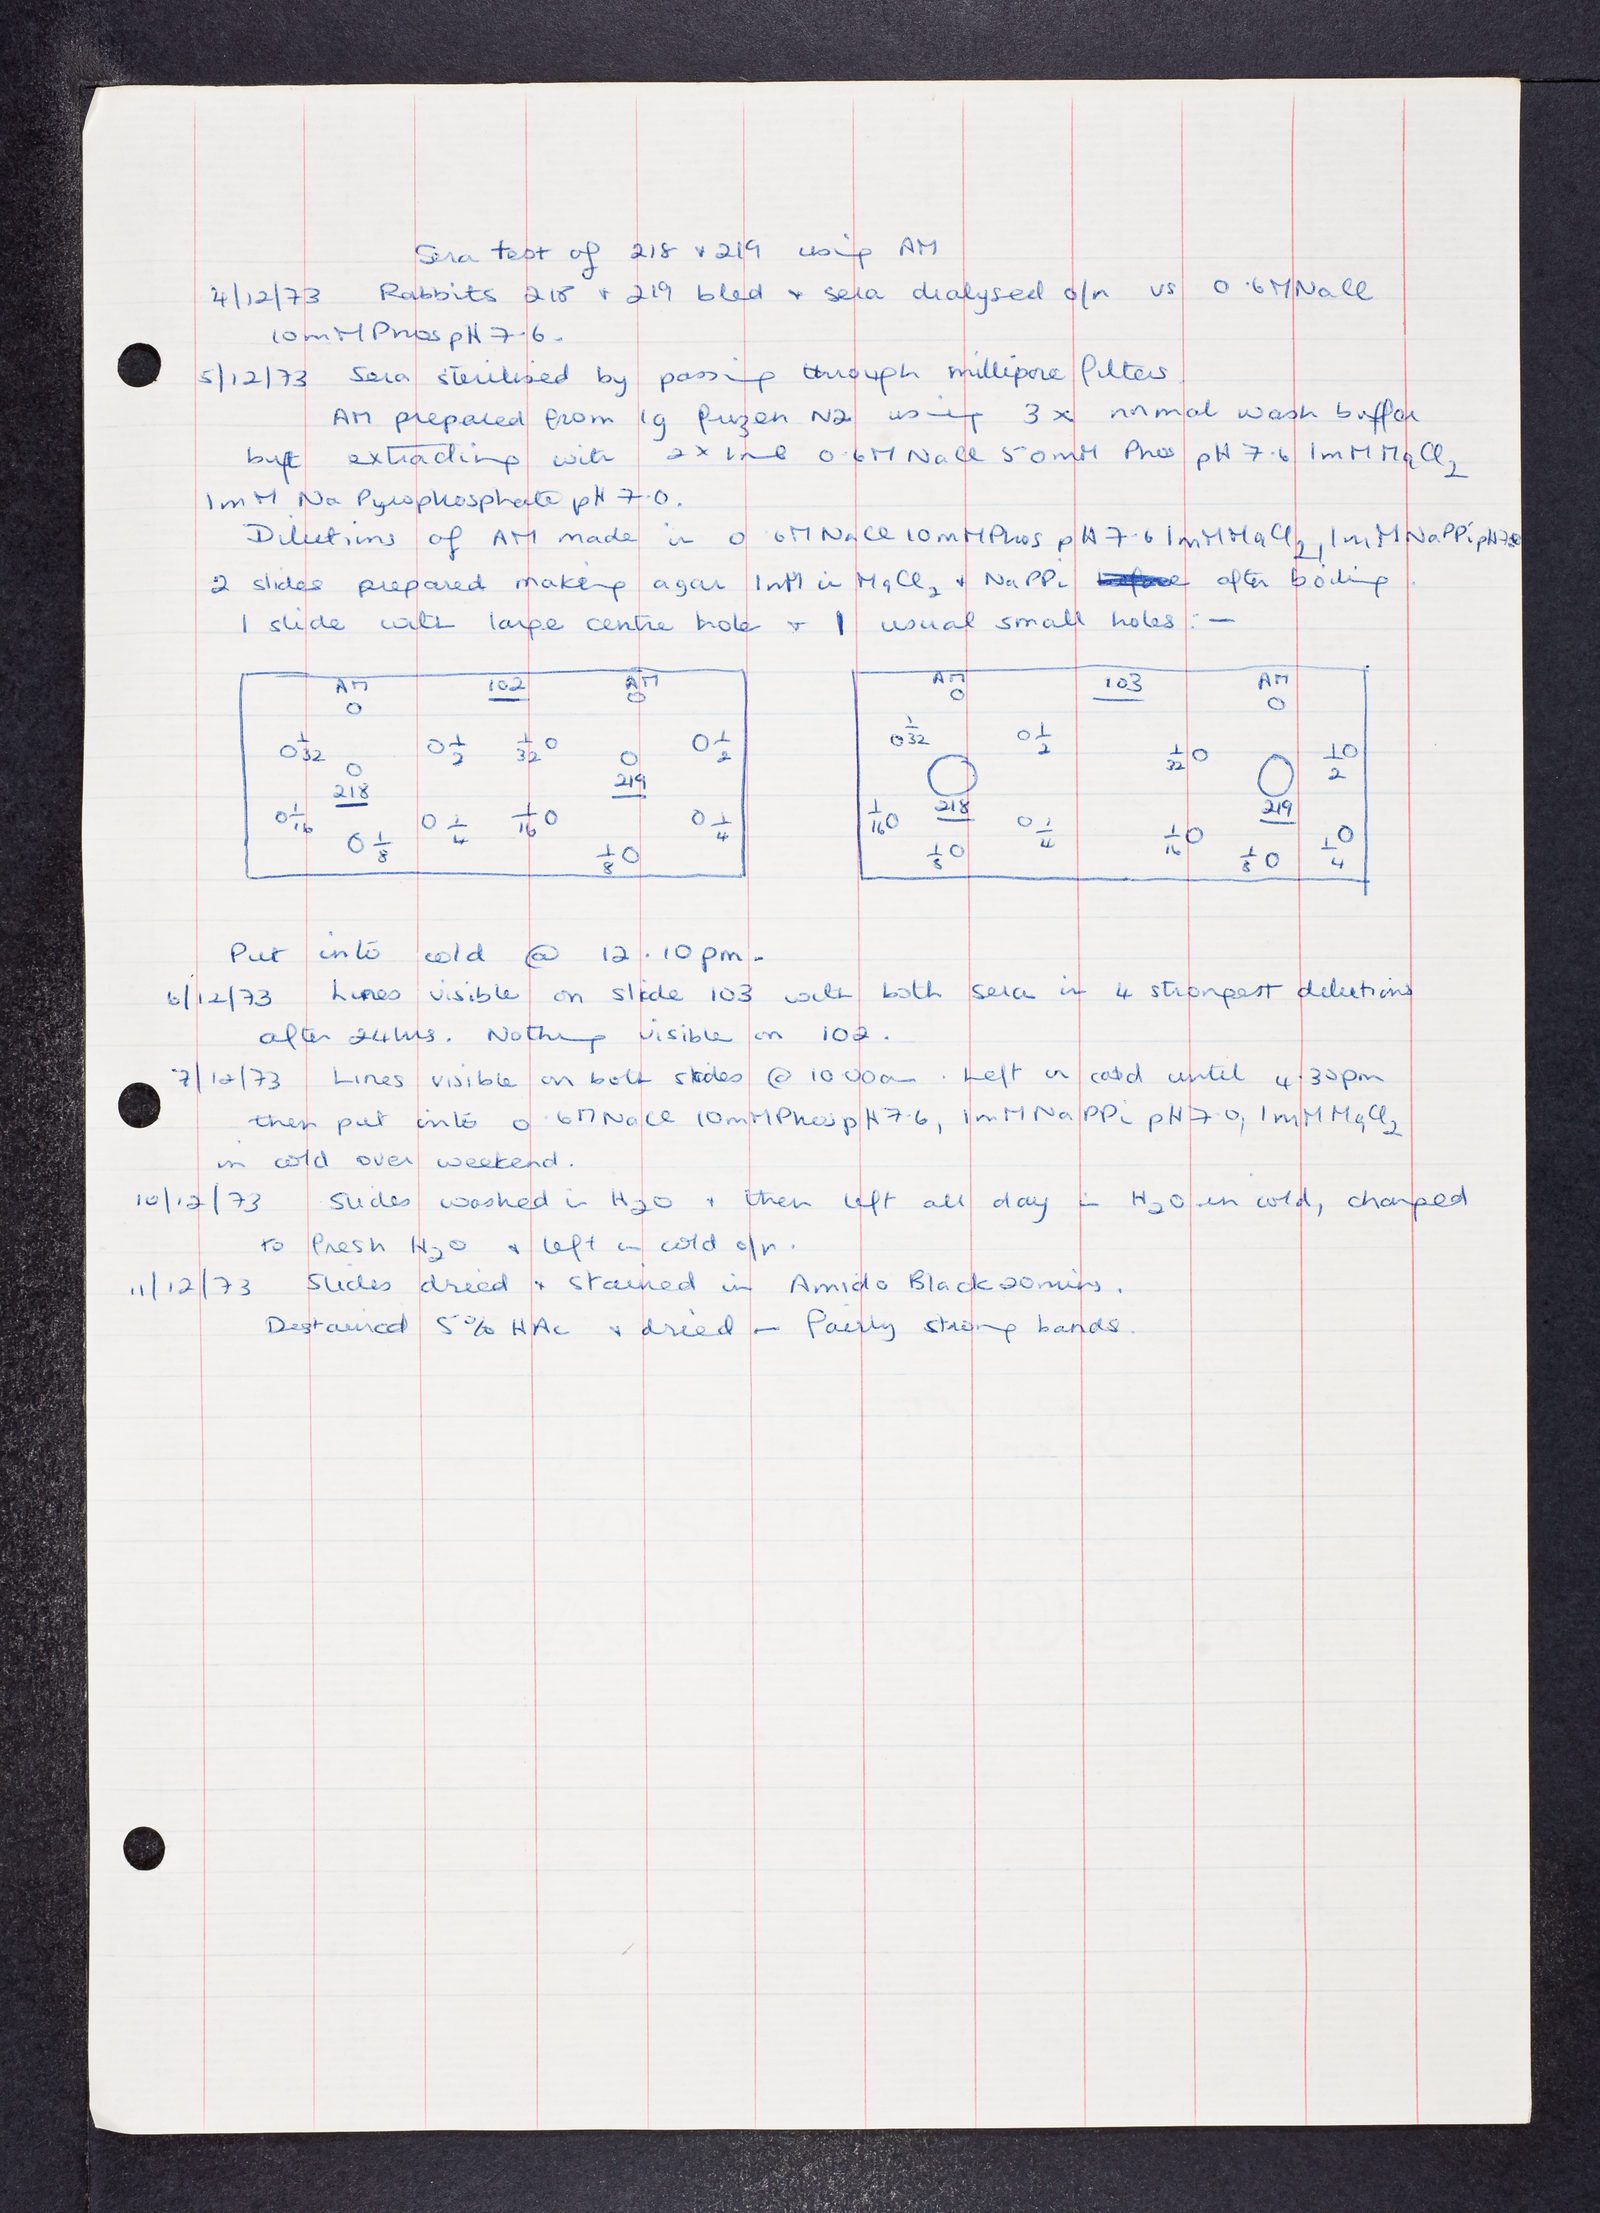 Sera test of 218 & 219 using AM
4/12/73 Rabbits 218 & 219 bled & sera dialysed o/n vs 0.6M NaCl
10mM Phos pH 7.6.
5/12/73 Sera sterilised by passing through millipore filters.
AM prepared from 1g frozen N2 using 3x normal wash buffer
but extracting with 2x1ml 0.6M NaCl 50mM Phos pH 7.6 1mM MgCl2
1mM Na Pyrophosphate pH 7.0.
Dilutions of AM made in 0.6M NaCl 10mM Phos pH 7.6 1mM MgCl2, 1mM NaPPi pH 7.0
2 slides prepared making agar 1mM in MgCl2 & NaPPi after boiling.
1 slide with large centre hole & 1 usual small holes:—
AM 102 AM
1/32 1/2 1/32 1/2
218 219
1/16 1/4 1/16 1/4
1/8 1/8
AM 103 AM
1/32 1/2 1/32 1/2
218 219
1/16 1/4 1/16 1/4
1/8 1/8
Put into cold @ 12.10pm.
6/12/73 Lines visible on slide 103 with both sera in 4 strongest dilutions
after 24hrs. Nothing visible on 102.
7/12/73 Lines visible on both slides @ 10.00am. Left in cold until 4.30pm
then put into 0.6M NaCl 10mM Phos pH 7.6, 1mM NaPPi pH 7.0, 1mM MgCl2
in cold over weekend.
10/12/73 Slides washed in H2O & then left all day in H2O in cold, changed
to fresh H2O & left in cold o/n.
11/12/73 Slides dried & stained in Amido Black 20mins.
Destained 5% HAc & dried — fairly strong bands.